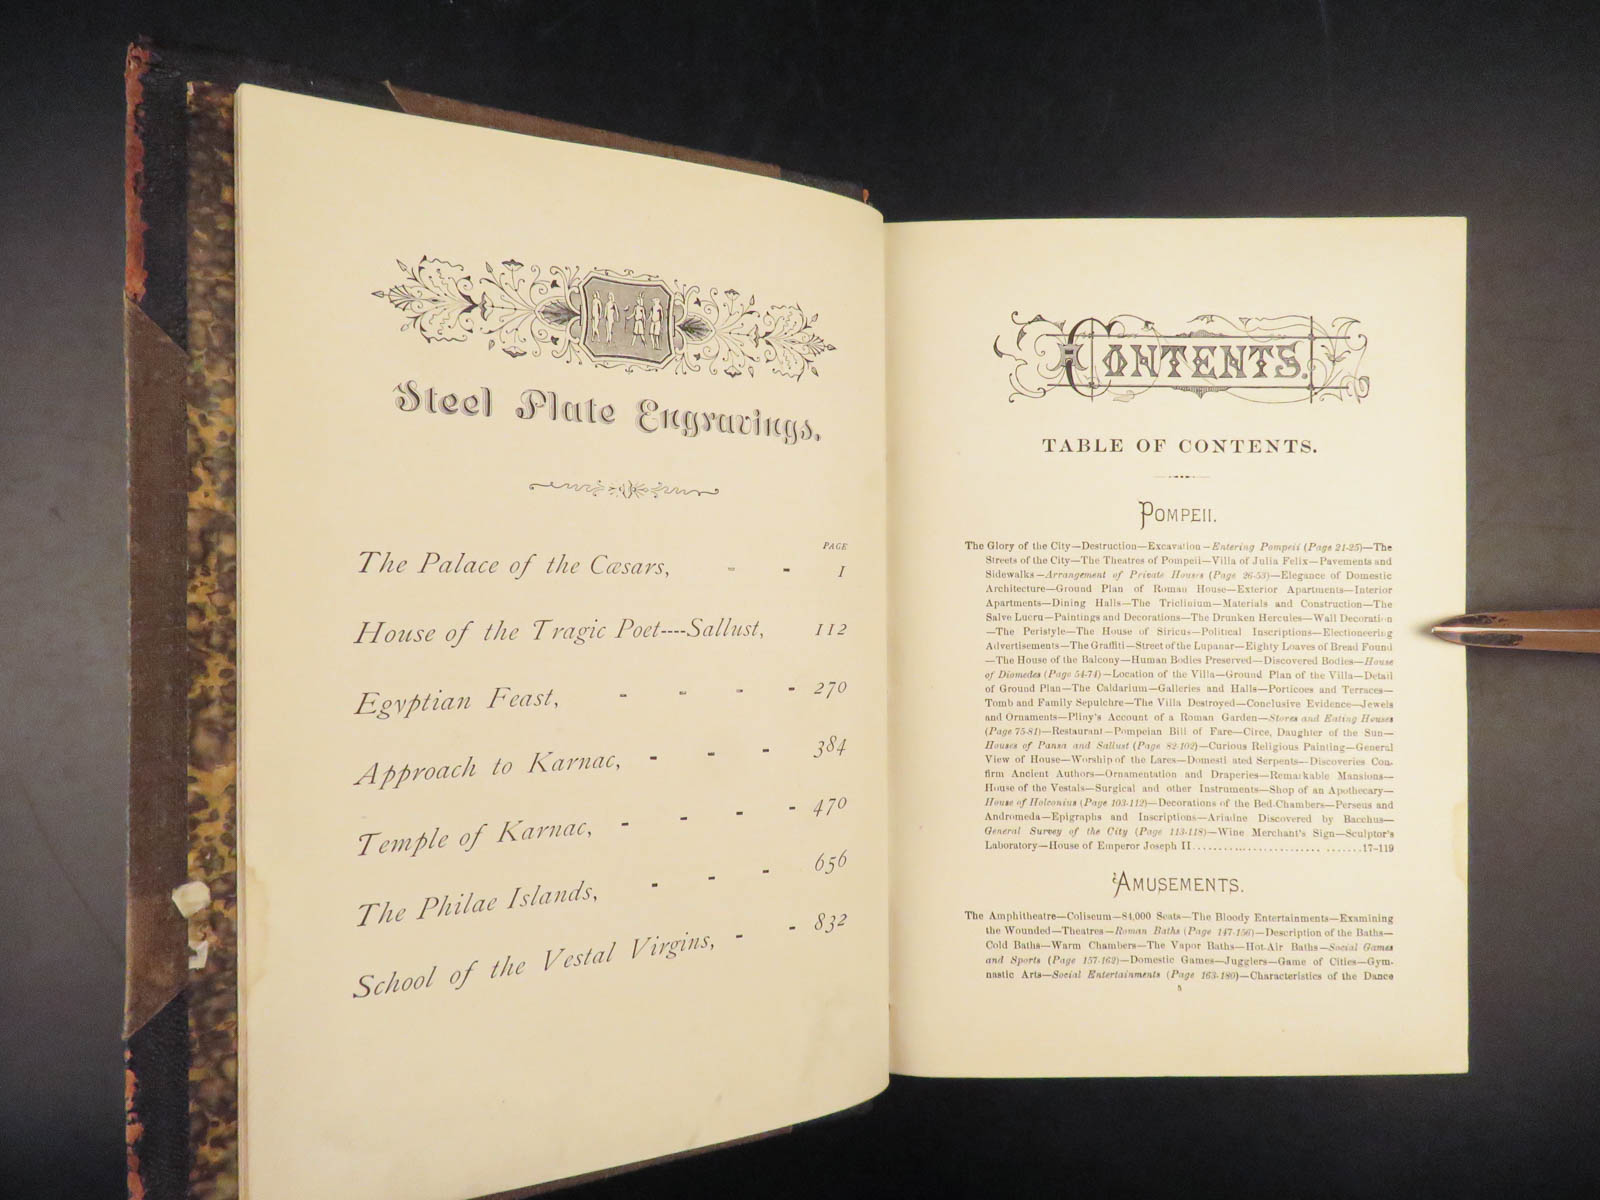 Steel Plate Engravings.
PAGE
The Palace of the Cæsars, - - 1
House of the Tragic Poet----Sallust, 112
Egyptian Feast, - - - - 270
Approach to Karnac, - - - 384
Temple of Karnac, - - - - 470
The Philae Islands, - - - 656
School of the Vestal Virgins, - - 832
CONTENTS.
TABLE OF CONTENTS.
POMPEII.
The Glory of the City—Destruction—Excavation—Entering Pompeii (Page 21-25)—The
Streets of the City—The Theatres of Pompeii—Villa of Julia Felix—Pavements and
Sidewalks—Arrangement of Private Houses (Page 26-53)—Elegance of Domestic
Architecture—Ground Plan of Roman House—Exterior Apartments—Interior
Apartments—Dining Halls—The Triclinium—Materials and Construction—The
Salve Lucru—Paintings and Decorations—The Drunken Hercules—Wall Decoration
—The Peristyle—The House of Siricus—Political Inscriptions—Electioneering
Advertisements—The Graffiti—Street of the Lupanar—Eighty Loaves of Bread Found
—The House of the Balcony—Human Bodies Preserved—Discovered Bodies—House
of Diomedes (Page 54-74)—Location of the Villa—Ground Plan of the Villa—Detail
of Ground Plan—The Caldarium—Galleries and Halls—Porticoes and Terraces—
Tomb and Family Sepulchre—The Villa Destroyed—Conclusive Evidence—Jewels
and Ornaments—Pliny's Account of a Roman Garden—Stores and Eating Houses
(Page 75-81)—Restaurant—Pompeian Bill of Fare—Circe, Daughter of the Sun—
Houses of Pansa and Sallust (Page 82-102)—Curious Religious Painting—General
View of House—Worship of the Lares—Domesti ated Serpents—Discoveries Con
firm Ancient Authors—Ornamentation and Draperies—Remarkable Mansions—
House of the Vestals—Surgical and other Instruments—Shop of an Apothecary—
House of Holconius (Page 103-112)—Decorations of the Bed-Chambers—Perseus and
Andromeda—Epigraphs and Inscriptions—Ariadne Discovered by Bacchus—
General Survey of the City (Page 113-118)—Wine Merchant's Sign—Sculptor's
Laboratory—House of Emperor Joseph II..........17-119
AMUSEMENTS.
The Amphitheatre—Coliseum—84,000 Seats—The Bloody Entertainments—Examining
the Wounded—Theatres—Roman Baths (Page 147-156)—Description of the Baths—
Cold Baths—Warm Chambers—The Vapor Baths—Hot-Air Baths—Social Games
and Sports (Page 157-162)—Domestic Games—Jugglers—Game of Cities—Gym-
nastic Arts—Social Entertainments (Page 163-180)—Characteristics of the Dance